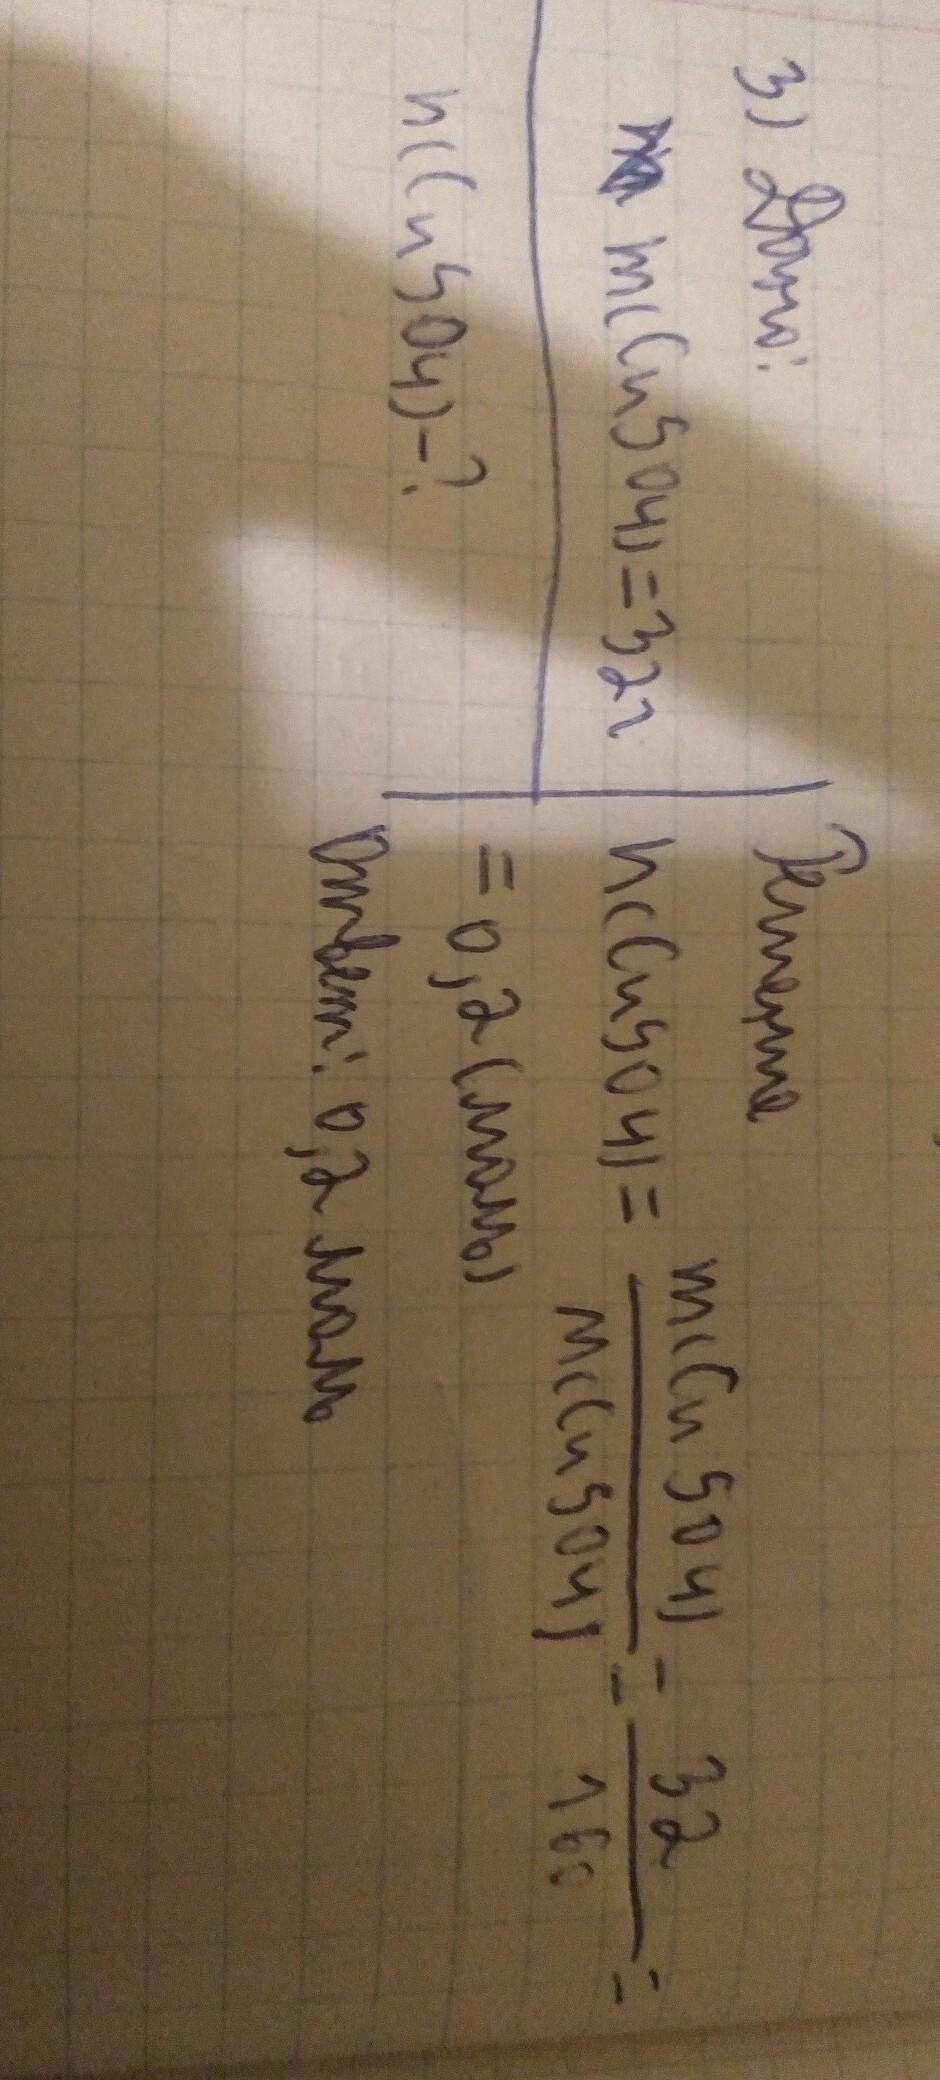 3) Дано:
m(CuSO4)=32г
n(CuSO4)-?
Решение
n(CuSO4) = m(CuSO4) / M(CuSO4) = 32 / 160 =
= 0,2 (моль)
Ответ: 0,2 моль